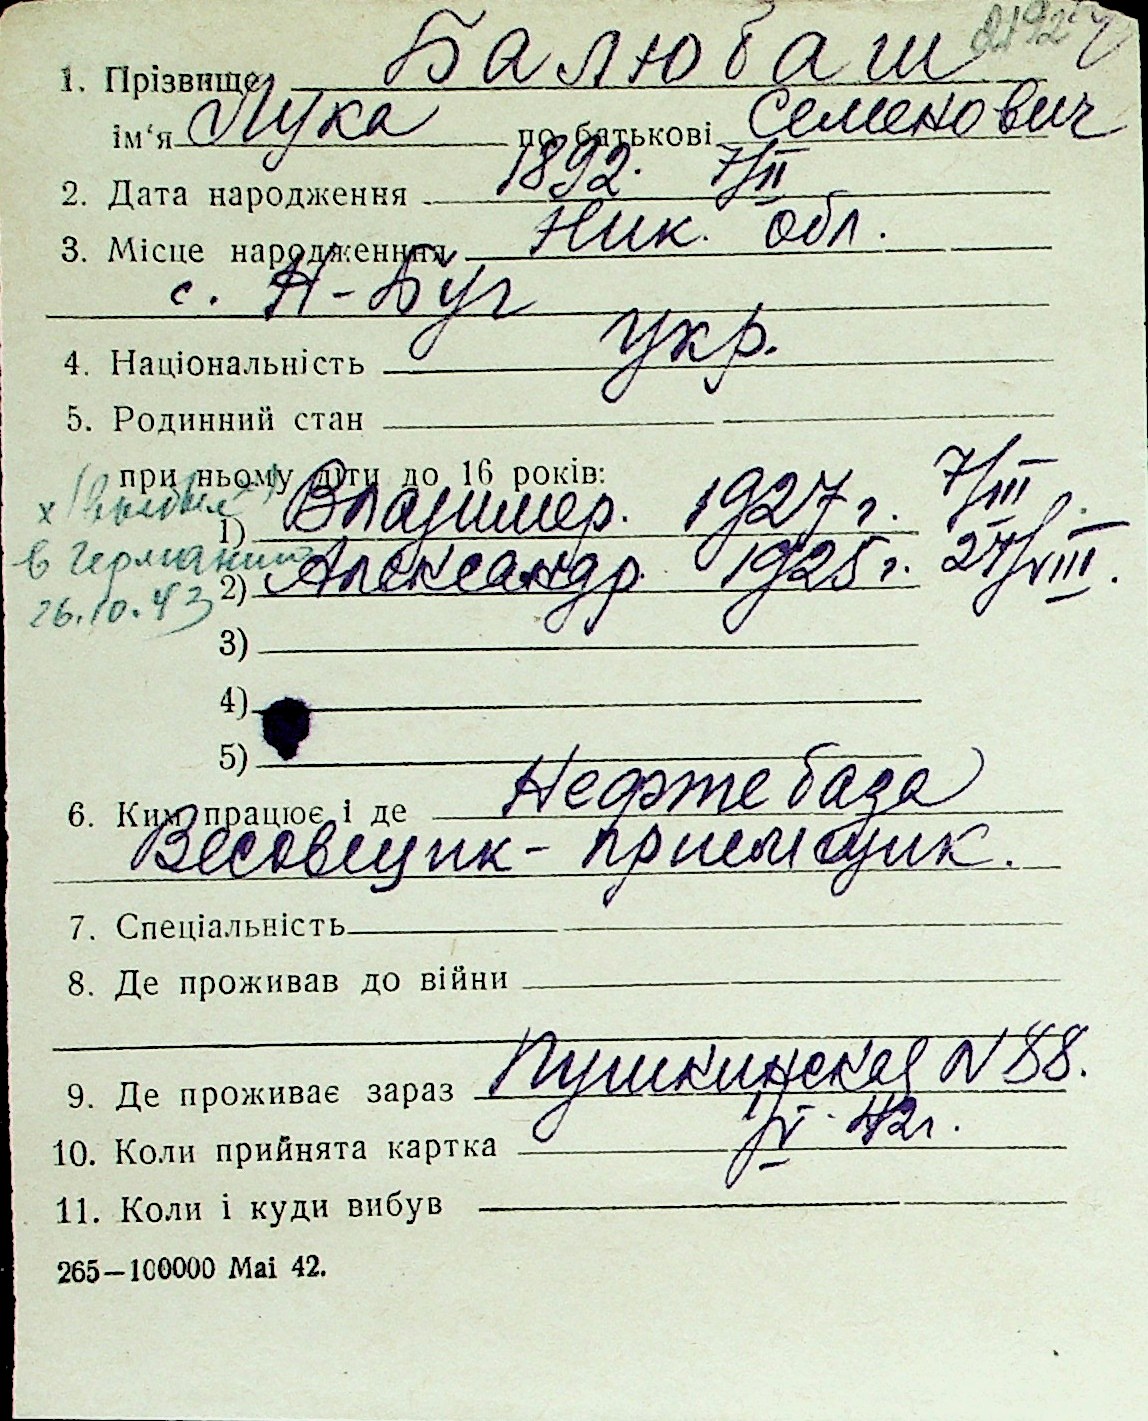 1. Прізвище Балюбаш
ім‘я Лука по батькові Семенович
2. Дата народження 1892. 7/II
3. Місце народженння Ник. обл.
с. Н-Буг
4. Національність укр.
5. Родинний стан
при ньому діти до 16 років:
1) Владимир. 1927 г. 7/III.
х
в Германию
2) Александр. 1925 г. 24/VIII.
26.10.43
3)
4)
5)
6. Ким працює і де Нефтебаза
Весовщик - приемщик.
7. Спеціальність
8. Де проживав до війни
9. Де проживає зараз Пушкинская N 88.
10. Коли прийнята картка 42г.
11. Коли і куди вибув
265—100000 Маі 42.